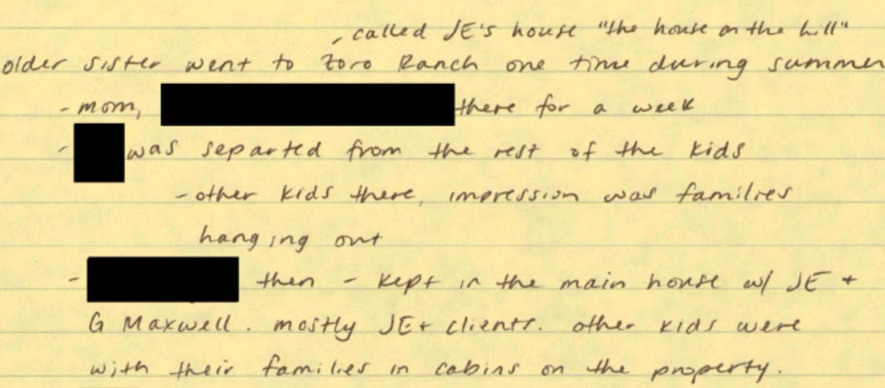 - called JE's house "the house on the hill"
older sister went to Zoro Ranch one time during summer
- mom, there for a week
- was separted from the rest of the kids
- other kids there, impression was families
hanging out
- then - kept in the main house w/ JE +
G Maxwell. mostly JE + clients. other kids were
with their families in cabins on the property.